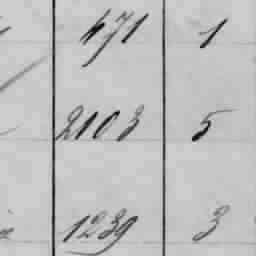 471 1
2103 5
1239 3